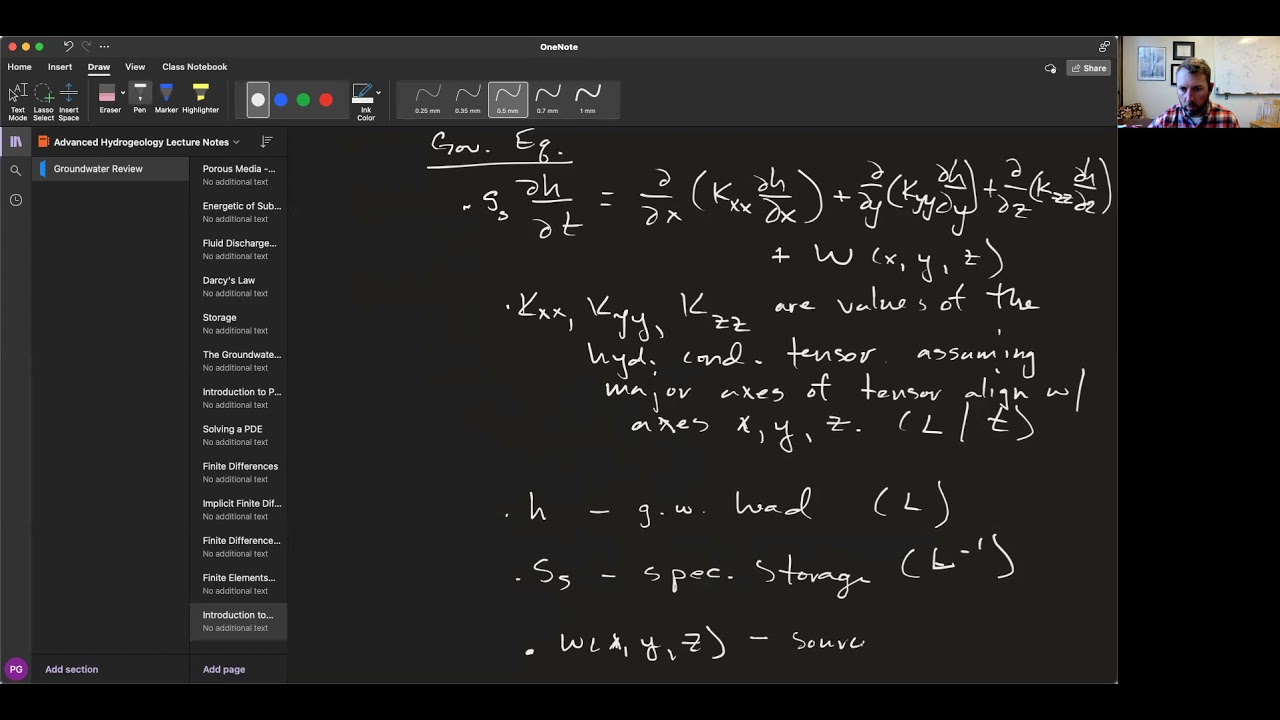 OneNote
Home Insert Draw View Class Notebook
Share
Eraser Pen Marker Highlighter
Text Mode
Lasso Select
Insert Space
Ink Color
0.25 mm 0.35 mm 0.5 mm 0.7 mm 1 mm
Advanced Hydrogeology Lecture Notes
Groundwater Review
Porous Media -...
No additional text
Energetic of Sub...
No additional text
Fluid Discharge...
No additional text
Darcy's Law
No additional text
Storage
No additional text
The Groundwate...
No additional text
Introduction to P...
No additional text
Solving a PDE
No additional text
Finite Differences
No additional text
Implicit Finite Dif...
No additional text
Finite Difference...
No additional text
Finite Elements...
No additional text
Introduction to...
No additional text
PG
Add section
Add page
Gov. Eq.
· Ss ∂h/∂t = ∂/∂x (Kxx ∂h/∂x) + ∂/∂y (Kyy ∂h/∂y) + ∂/∂z (Kzz ∂h/∂z)
+ W (x, y, z)
· Kxx, Kyy, Kzz are values of the
hyd. cond. tensor assuming
major axes of tensor align w/
axes x, y, z. (L / t)
· h - g.w. head (L)
· Ss - spec. storage (L⁻¹)
· W(x, y, z) - sourc